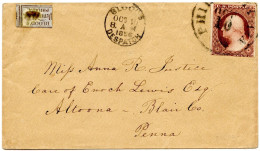 BLOOD'S
OCT
8 A
1856
DESPATCH
PHIL
Miss Anna R. Justice
Care of Enoch Lewis Esq
Altoona - Blair Co.
Penna